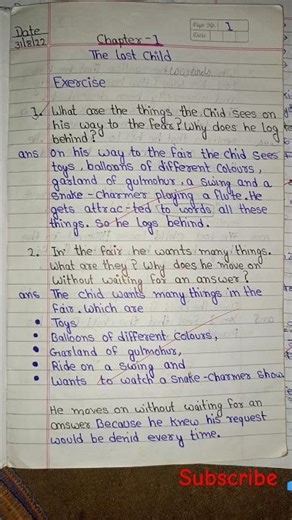 Date
31/8/22
Page No. 1
Date
Chapter-1
The Lost Child
Exercise
1. What are the things the Chid sees on
his way to the fear? Why does he log
behind?
ans on his way to the fair the chid sees
toys, balloons of different colours,
garland of gulmohur, a swing and a
snake-charmer playing a flute. He
gets attrac-ted to words all these
things. So he logs behind.
2. In the fair he wants many things.
What are they? Why does he move on
without waiting for an answer?
ans The chid wants many things in the
fair. Which are
• Toys
• Balloons of different colours,
• Garland of gulmohur,
• Ride on a swing and
• Wants to watch a snake-charmer show
He moves on without waiting for an
answer Because he knew his request
would be denid every time.
Subscribe